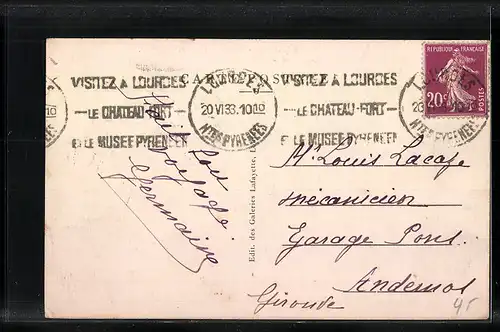 CARTE POSTALE
VISITEZ A LOURDES
LE CHATEAU-FORT
ET LE MUSEE PYRENEEN
LOURDES
20 VI 33. 10 10
HTES PYRENEES
VISITEZ A LOURDES
LE CHATEAU-FORT
ET LE MUSEE PYRENEEN
LOURDES
HTES PYRENEES
REPUBLIQUE FRANÇAISE
20c
POSTES
Germaine
Edit. des Galeries Lafayette,
Mr Louis Lacaze
mécanicien
Garage Pons
Andernos
Gironde